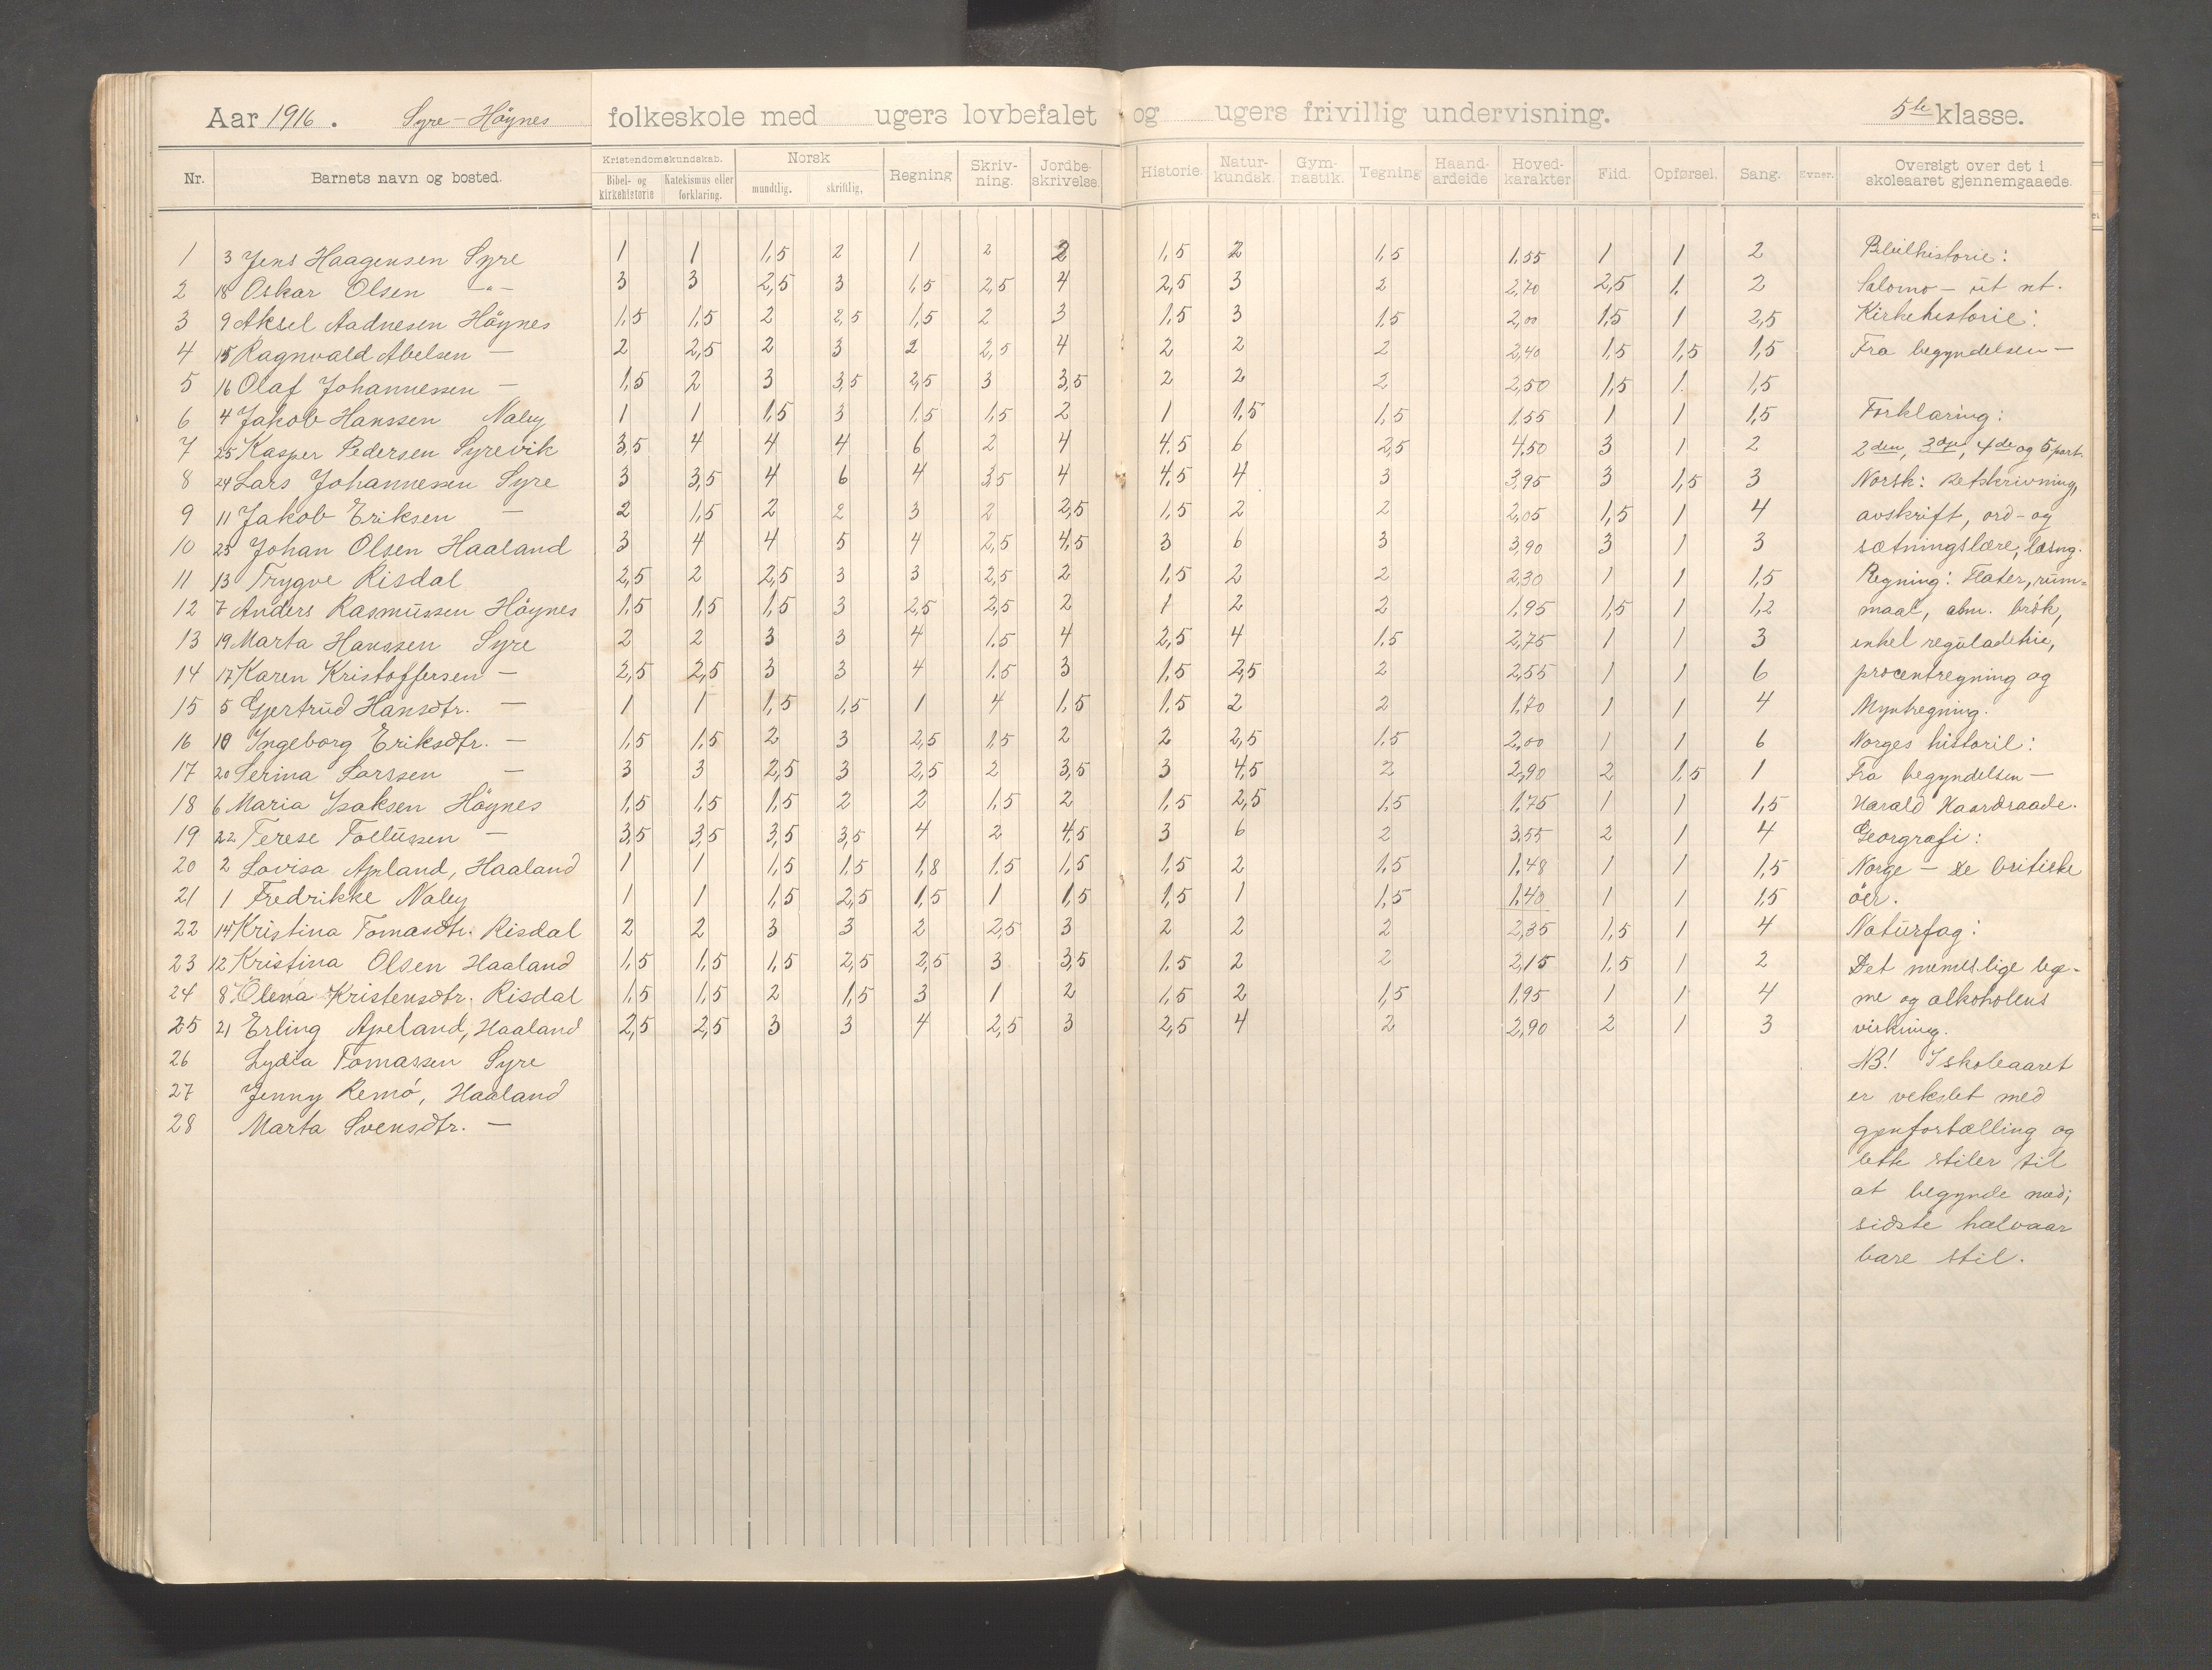 Aar 1916. Syre-Höynes folkeskole med ugers lovbefalet og ugers frivillig undervisning. 5te klasse.
Nr. Barnets navn og bosted. Kristendomskundskab. Bibel- og kirkehistorie Katekismus eller forklaring. Norsk mundtlig. skriftlig, Regning Skriv-ning. Jordbe-skrivelse. Historie. Natur-kundsk. Gym-nastik. Tegning Haand-arbeide Hoved-karakter Flid. Opførsel. Sang. Evner. Oversigt over det i skoleaaret gjennemgaaede.
1 3 Jens Haagensen Syre 1 1 1,5 2 1 2 2 1,5 2 1,5 1,55 1 1 2 Bibilhistorie:
2 18 Oskar Olsen -"- 3 3 2,5 3 1,5 2,5 4 2,5 3 2 2,70 2,5 1. 2 Salomo - ut nt.
3 9 Aksel Aadnesen Höynes 1,5 1,5 2 2,5 1,5 2 3 1,5 3 1,5 2,00 1,5 1 2,5 Kirkehistorie:
4 15 Ragnvald Abelsen — 2 2,5 2 3 2 2,5 4 2 2 2 2,40 1,5 1,5 1,5 Fra begyndelsen —
5 16 Olaf Johannessen — 1,5 2 3 3,5 2,5 3 3,5 2 2 2 2,50 1,5 1. 1,5
6 4 Jakob Hanssen Naley 1 1 1,5 3 1,5 1,5 2 1 1,5 1,5 1,55 1 1 1,5 Forklaring:
7 25 Kasper Pedersen Syrevik 3,5 4 4 4 6 2 4 4,5 6 2,5 4,50 3 1 2 2den, 3dje, 4de og 5 part.
8 24 Lars Johannessen Syre 3 3,5 4 6 4 3,5 4 4,5 4 3 3,95 3 1,5 3 Norsk: Retskrivning,
9 11 Jakob Eriksen — 2 1,5 2 2 3 2 2,5 1,5 2 2 2,05 1,5 1 4 avskrift, ord- og
10 23 Johan Olsen Haaland 3 4 4 5 4 2,5 4,5 3 6 3 3,90 3 1 3 sætningslære, læsng.
11 13 Trygve Risdal 2,5 2 2,5 3 3 2,5 2 1,5 2 2 2,30 1 1 1,5 Regning: Flater, rum=
12 7 Anders Rasmussen Höynes 1,5 1,5 1,5 3 2,5 2,5 2 1 2 2 1,95 1,5 1 1,2 maal, alm. brök,
13 19 Marta Hanssen Syre 2 2 3 3 4 1.5 4 2,5 4 1,5 2,75 1 1 3 enkel reguladetrie,
14 17 Karen Kristoffersen — 2,5 2,5 3 3 4 1.5 3 1,5 2,5 2 2,55 1 1 6 procentregning og
15 5 Gjertrud Hansdtr. — 1 1 1,5 1,5 1 4 1,5 1,5 2 2 1,70 1 1 4 Myntregning.
16 10 Ingeborg Eriksdtr. — 1,5 1,5 2 3 2,5 1,5 2 2 2,5 1,5 2,00 1 1 6 Norges historil:
17 20 Serina Larssen — 3 3 2,5 3 2,5 2 3,5 3 4,5 2 2,90 2 1,5 1 Fra begyndelsen —
18 6 Maria Isaksen Höynes 1,5 1,5 1,5 2 2 1,5 2 1,5 2,5 1,5 1,75 1 1 1,5 Harald Haardraade.
19 22 Terese Tollussen — 3,5 3,5 3,5 3,5 4 2 4,5 3 6 2 3,55 2 1 4 Georgrafi:
20 2 Lovisa Apland, Haaland 1 1 1,5 1,5 1,8 1.5 1,5 1,5 2 1,5 1,48 1 1 1,5 Norge — De britiske
21 1 Fredrikke Naley 1 1 1,5 2,5 1,5 1 1,5 1,5 1 1,5 1,40 1 1 1,5 öer.
22 14 Kristina Tomasdtr. Risdal 2 2 3 3 2 2,5 3 2 2 2 2,35 1,5 1 4 Naturfag:
23 12 Kristina Olsen Haaland 1,5 1,5 1,5 2,5 2,5 3 3,5 1,5 2 2 2,15 1,5 1 2 Det menneslige lege-
24 8 Olena Kristensdtr. Risdal 1,5 1,5 2 1,5 3 1 2 1,5 2 1,5 1,95 1 1 4 me og alkoholens
25 21 Erling Apeland, Haaland 2,5 2,5 3 3 4 2,5 3 2,5 4 2 2,90 2 1 3 virkning.
26 Lydia Tomassen Syre NB! I skoleaaret
27 Jenny Remö, Haaland er vekslet med
28 Marta Svensdtr. — gjenfortælling og
lette stiler til
at begynde med;
sidste halvaar
bare stil.